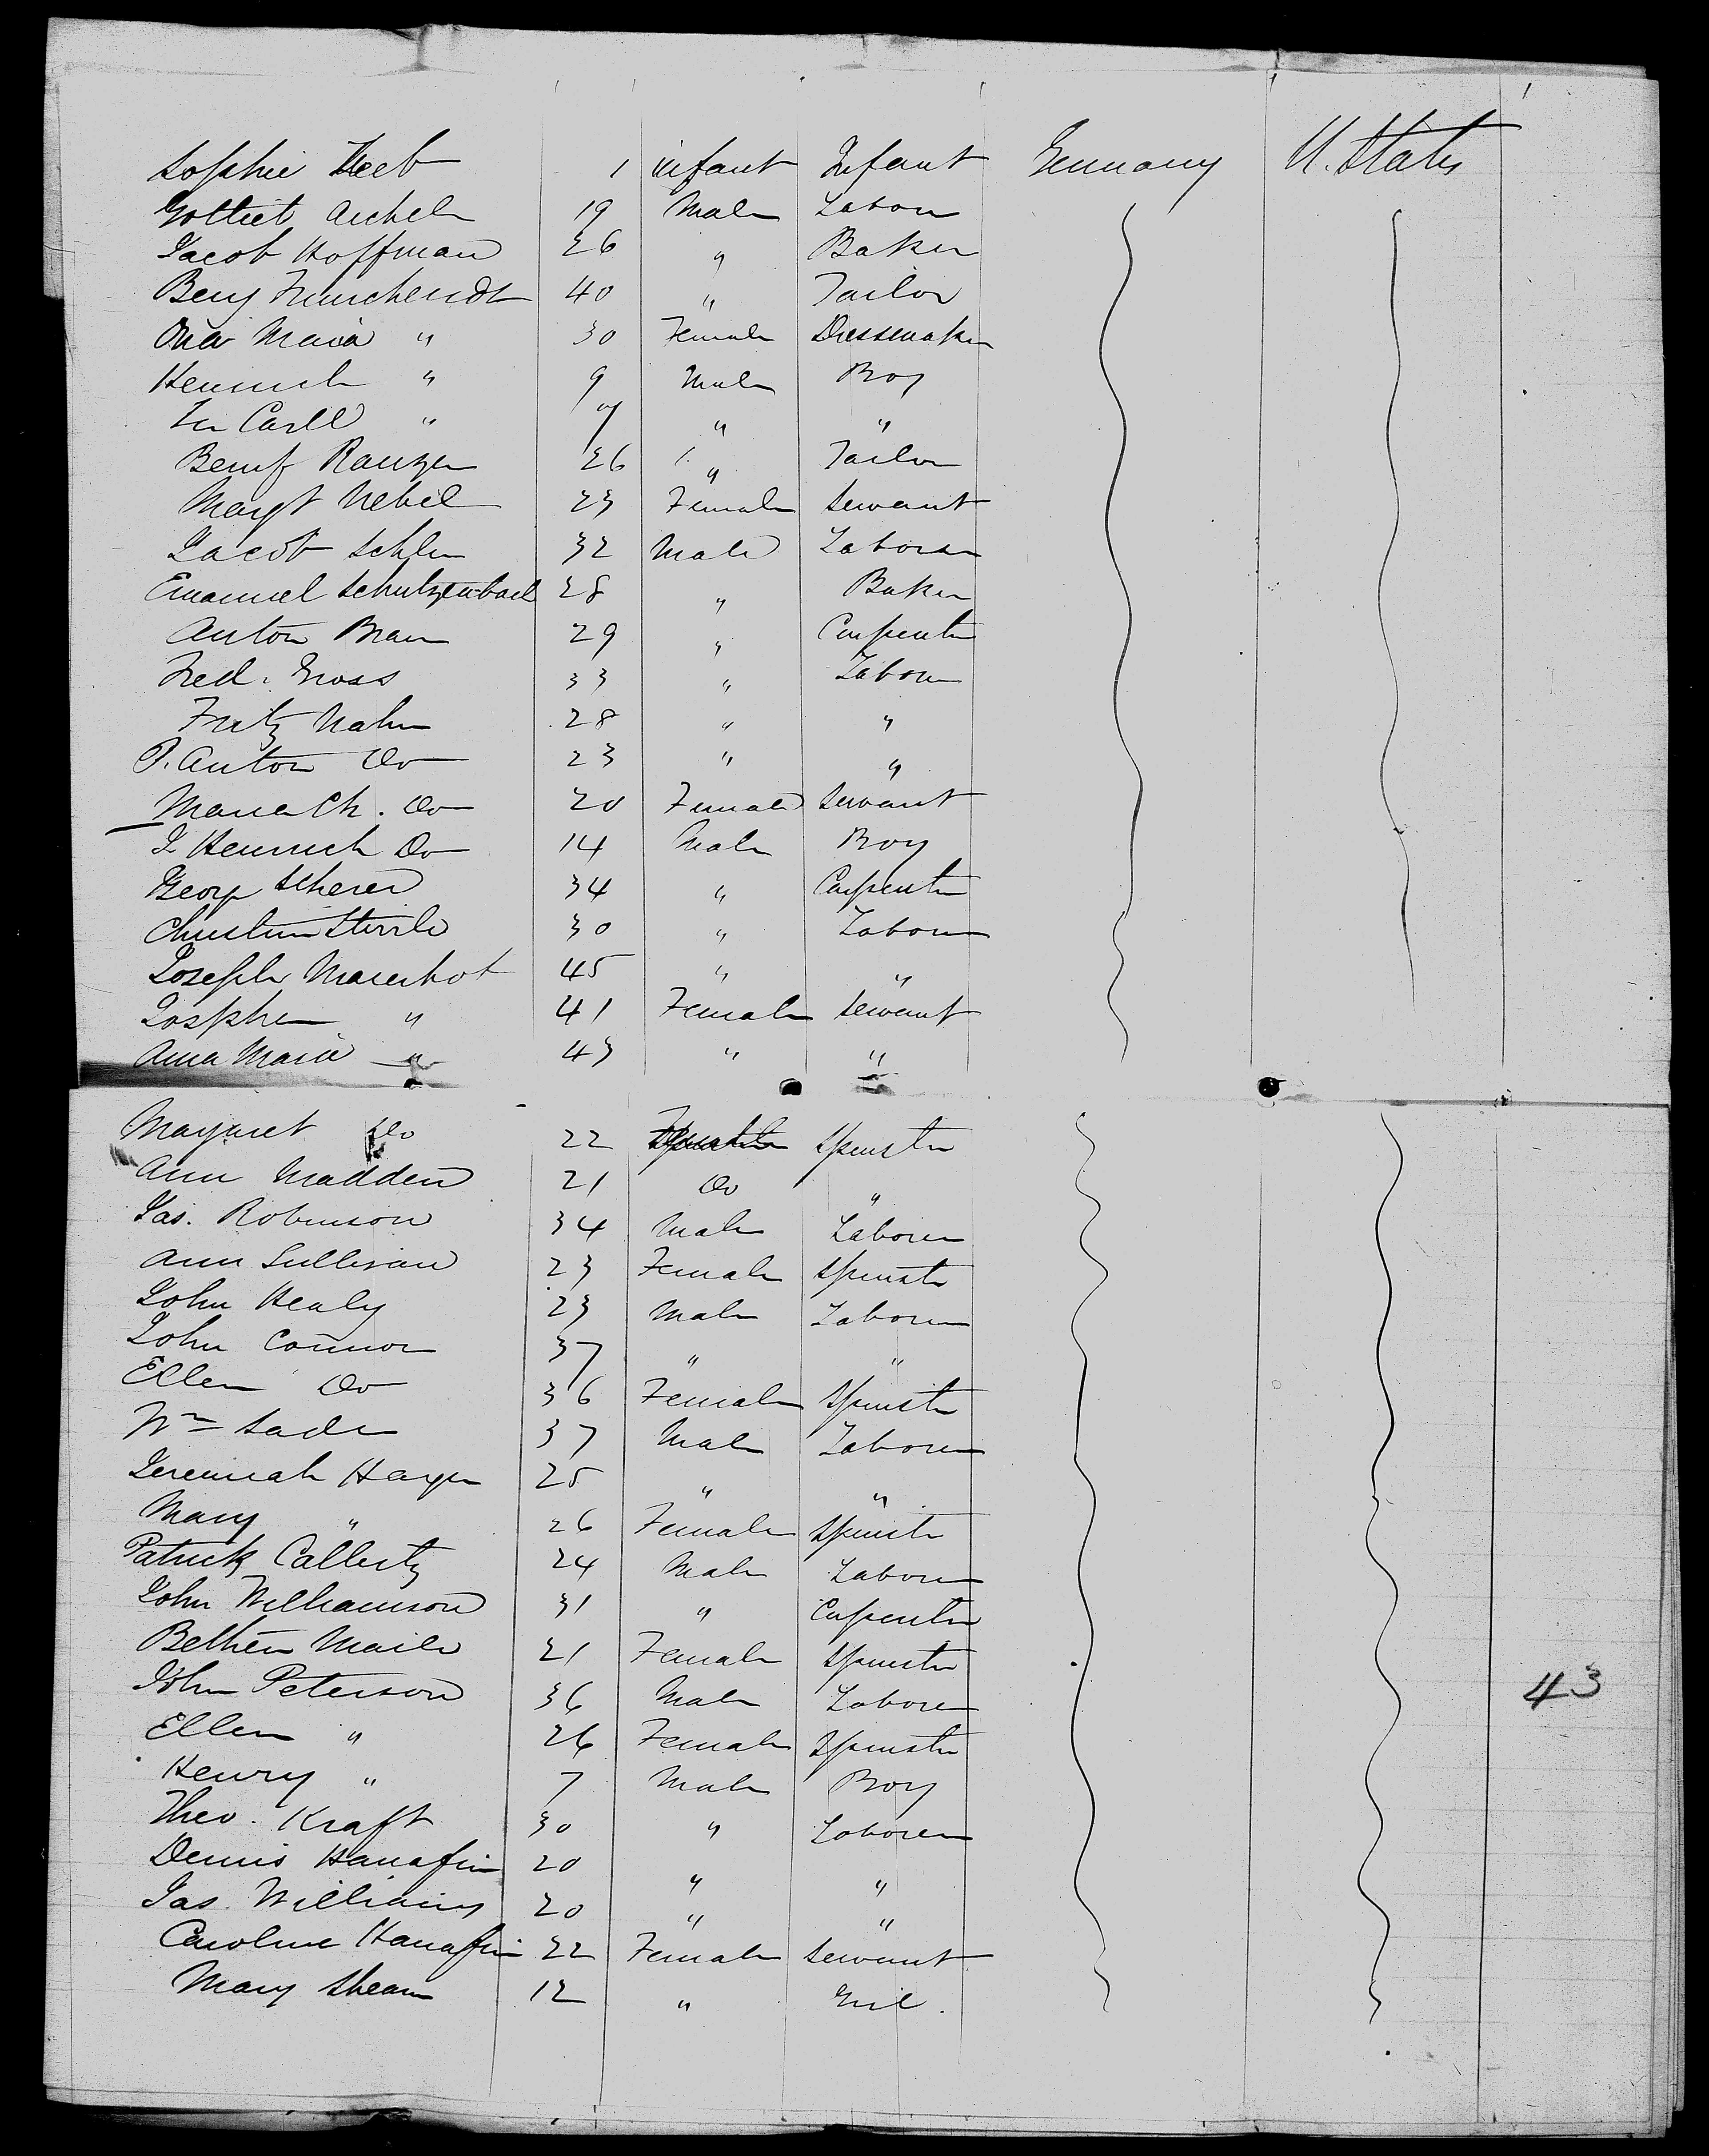 Sophie Keeb 1 infant Infant Germany U. States
Gottlieb Aichele 19 Male Labour
Jacob Hoffman 26 " Baker
Benj 40 " Tailor
Maria " 30 Female Dressmaker
Heinrich " 9 Male Boy
Carll " 7 " "
26 " Tailor
Margt Nebel 23 Female Servant
Jacob Schlen 32 Male Laborer
Emanuel Schutzenbach 28 " Baker
Anton Braun 29 " Carpenter
Fred. Gross 33 " Labour
Fritz Nahm 28 " "
P. Anton Do 23 " "
Maria Ch. Do 20 Female Servant
J Heinrich Do 14 Male Boy
Georg Scherer 34 " Carpenter
Christian 30 " Labour
Joseph 45 " "
Josephe " 41 Female Servant
Anna Maria " 43 " "
Margaret Do 22 Female Spinster
Ann Madden 21 Do "
Jas. Robinson 34 Male Laborer
Ann Sullivan 23 Female Spinster
John Healy 23 Male Laborer
John Connor 37 " "
Ellen Do 36 Female Spinster
Wm Sade 37 Male Laborer
Jeremiah Hayes 25 " "
Mary " 26 Female Spinster
Patrick 24 Male Laborer
John Williamson 31 " Carpenter
21 Female Spinster
John Peterson 36 Male Laborer 43
Ellen " 26 Female Spinster
Henry " 7 Male Boy
Theo. Kraft 30 " Laborer
Dennis Hanafin 20 " "
Jas. Williams 20 " "
Caroline Hanafin 22 Female Servant
Mary Shean 12 " Girl.